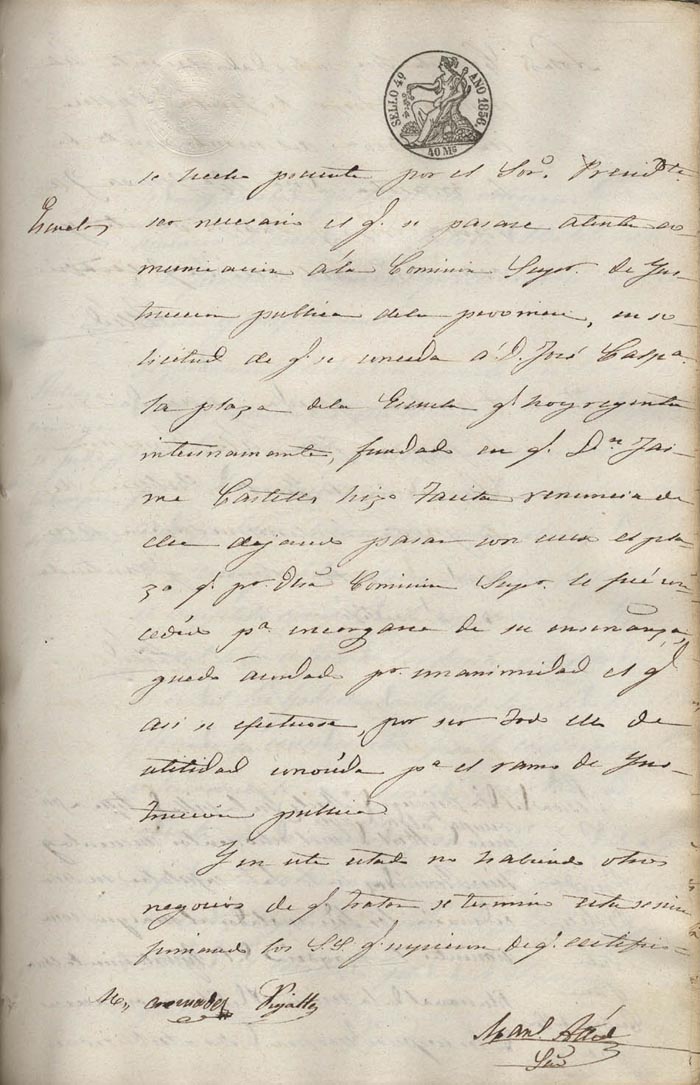 SELLO 4º AÑO 1856.
40 Ms
se hecho presente por el Sor. Presidte.
Escuelas
ser necesario el q. se pasase atenta co-
municacion á la Comision Supor. de Yns-
truccion publica dela provincia, en so-
licitud de q. se conceda á D. José Caspa
la plaza dela Escuela q. hoy regenta
interinamente, fundado en q. Dn. Jai-
me Castells hizo tacita renuncia de
ella dejando pasar con mes el pla-
zo q. pr. dha. Comision Supor. le fué con-
cedido pa. encargarse de su enseñanza,
quedó acordado pr. unanimidad el q.
asi se efectuase, por ser todo ello de
utilidad conocida pa. el ramo de Yns-
truccion publica
Y en este estado no habiendo otros
negocios de q. tratar se terminó esta sesion
firmando los S.S. q. supieron de q. certifico
Manl.
Srio